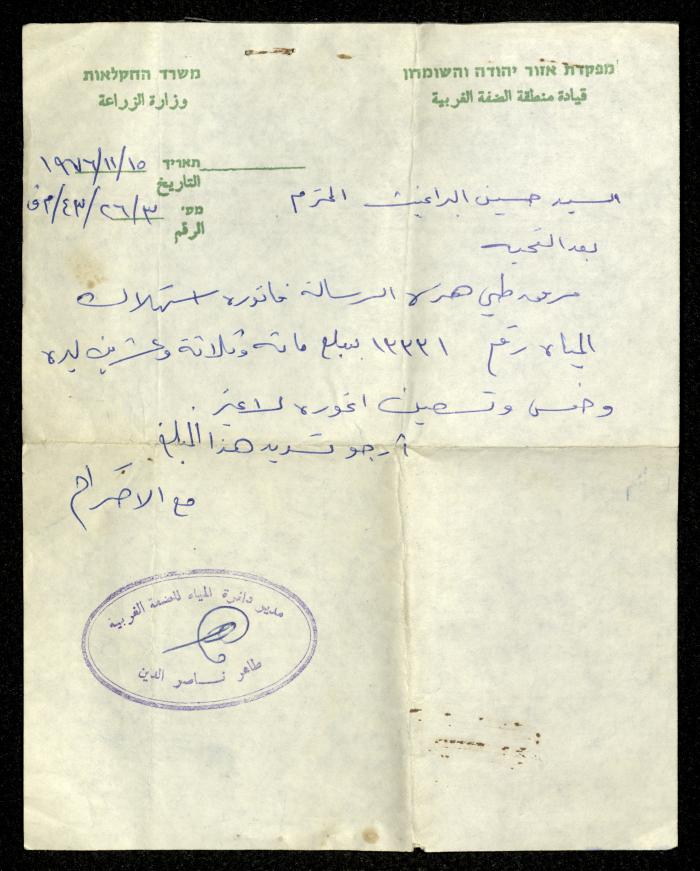 מפקדת אזור יהודה והשומרון
قيادة منطقة الضفة الغربية
משרד החקלאות
وزارة الزراعة
תאריך
التاريخ ١٩٧٦/١١/١٥
מס׳
الرقم م ق/٤٣/٢٦/٣
السيد حسين البراغيث المحترم
بعد التحيه
مرفق طي هذه الرسالة فاتوره استهلاك
المياه رقم ١٣٣٣١ بمبلغ مائه وثلاثة وعشرين ليره
وخمس وتسعين اغوره لا غير.
أرجو تسديد هذا المبلغ
مع الاحترام
مدير دائرة المياه للضفة الغربية
طاهر ناصر الدين